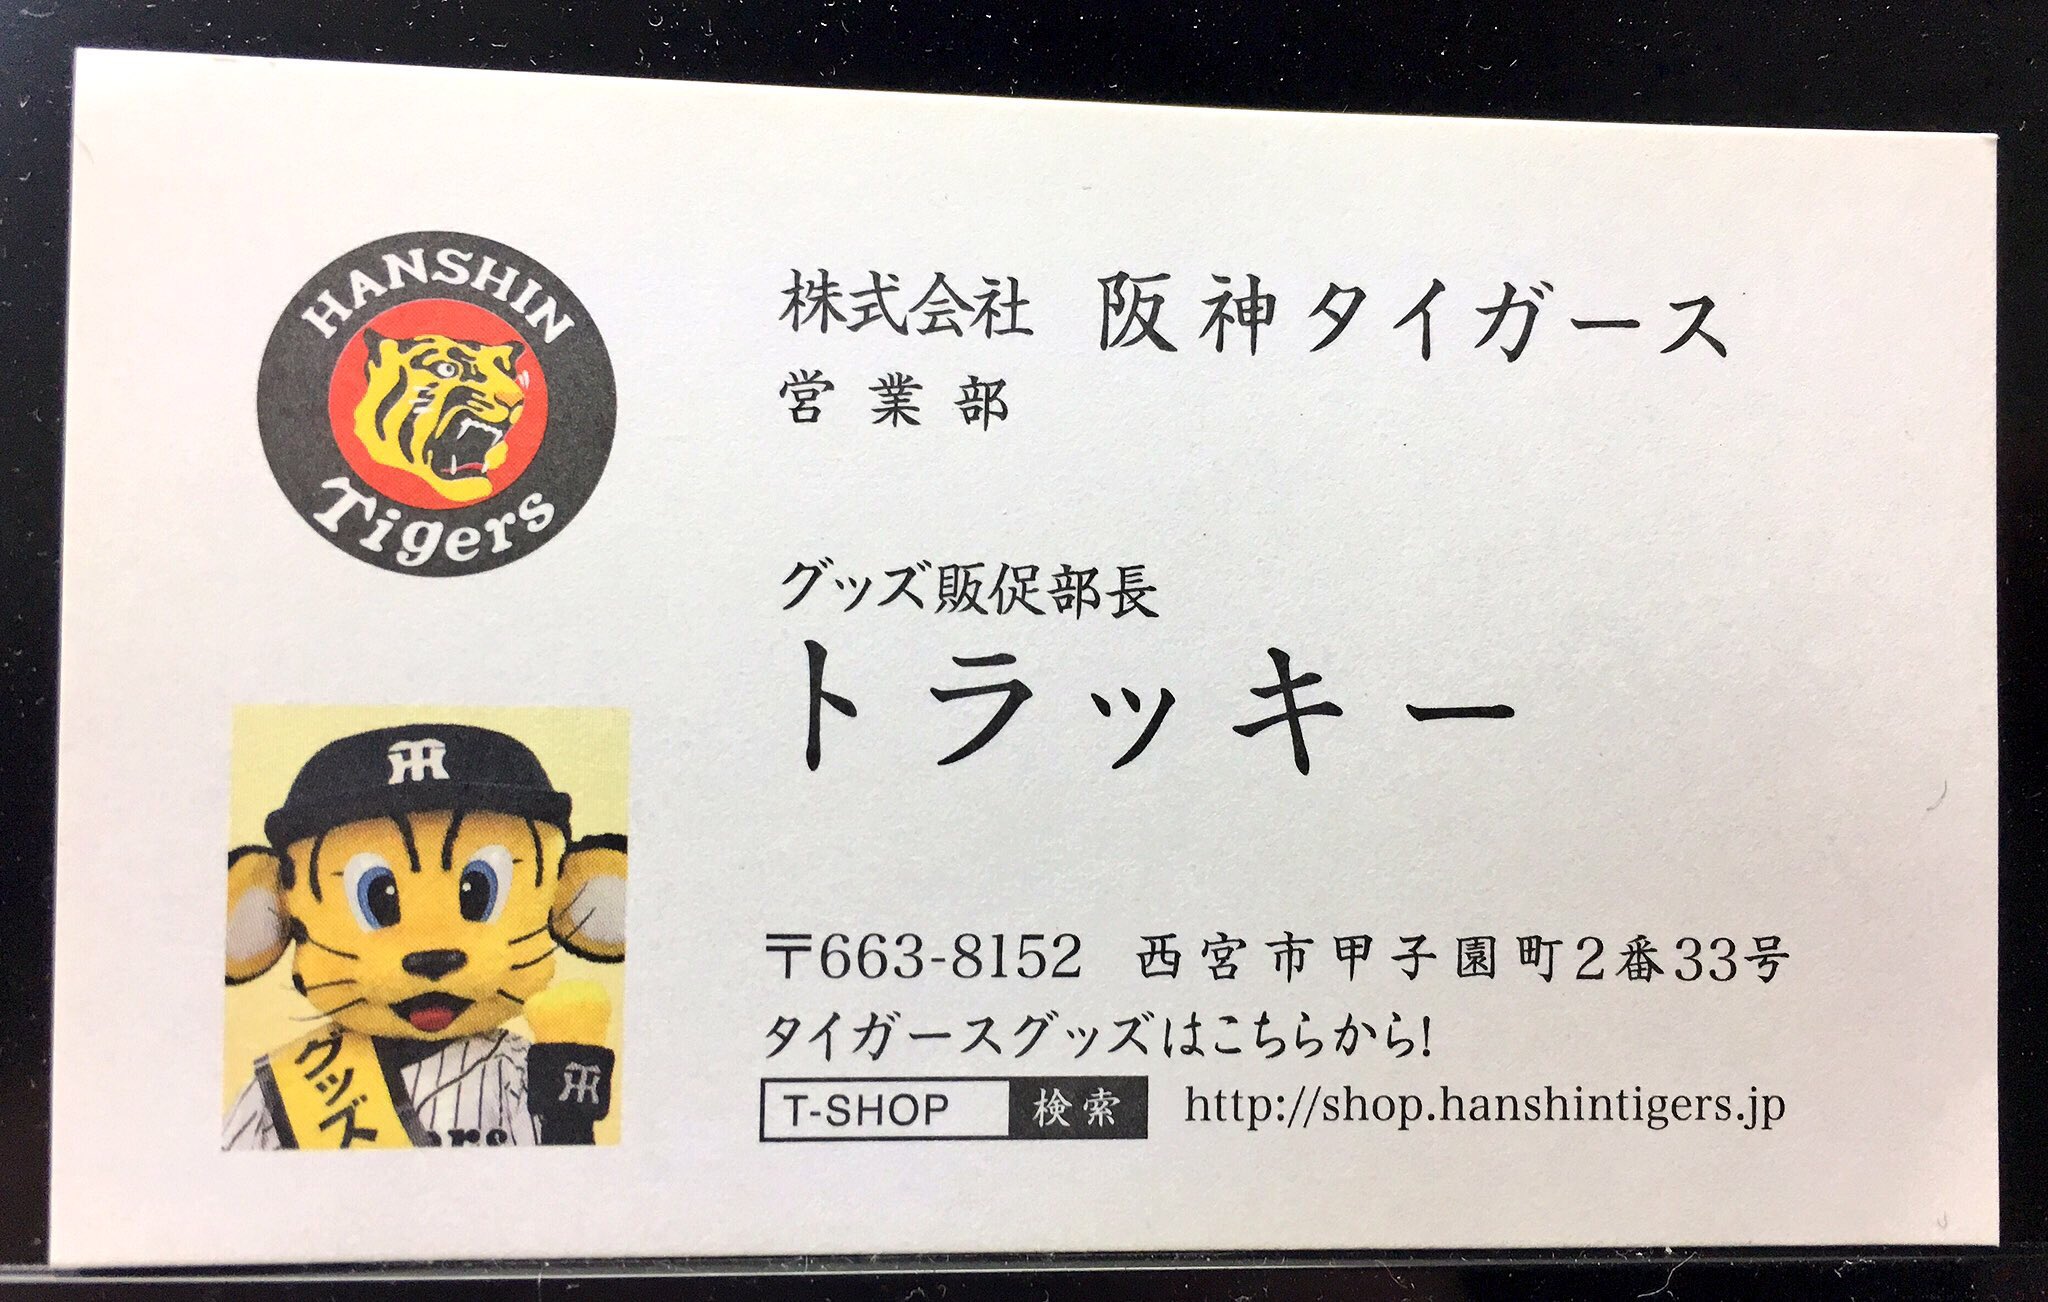 HANSHIN
Tigers
株式会社 阪神タイガース
営業部
グッズ販促部長
トラッキー
グッズ
〒663-8152 西宮市甲子園町2番33号
タイガースグッズはこちらから!
T-SHOP 検索 http://shop.hanshintigers.jp